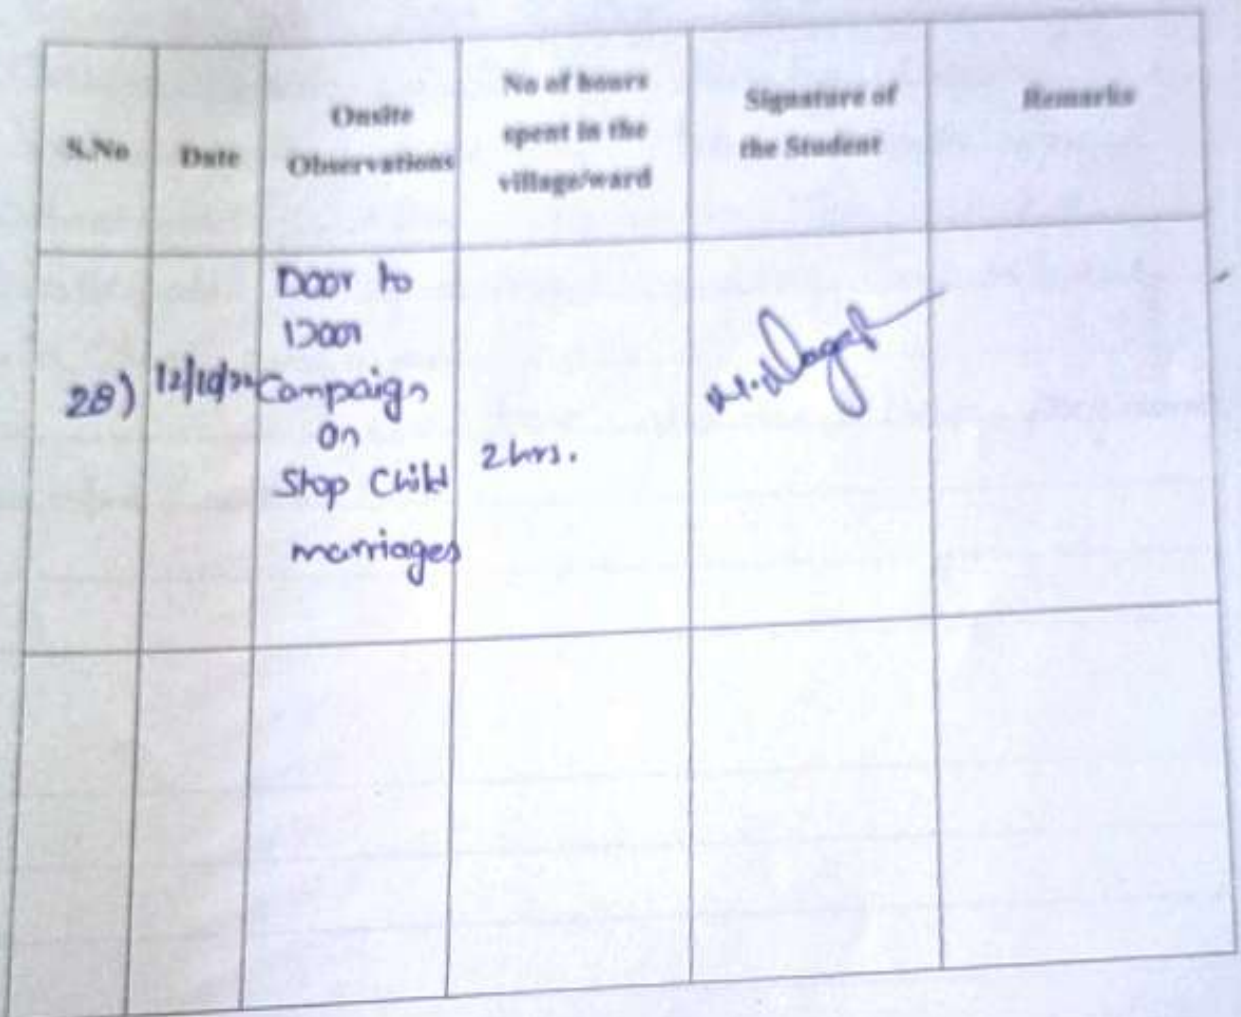 S.No
Date
Onsite
Observations
No of hours
spent in the
village/ward
Signature of
the Student
Remarks
28)
Door to
Door
Campaign
on
Stop Child
marriages
2 hrs.